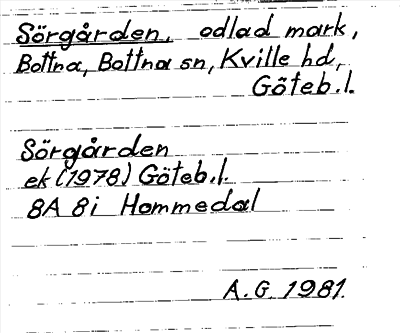 Sörgården, odlad mark,
Bottna, Bottna sn, Kville hd,
Göteb.l.
Sörgården
ek (1978) Göteb.l.
8A 8i Hommedal
A.G. 1981.